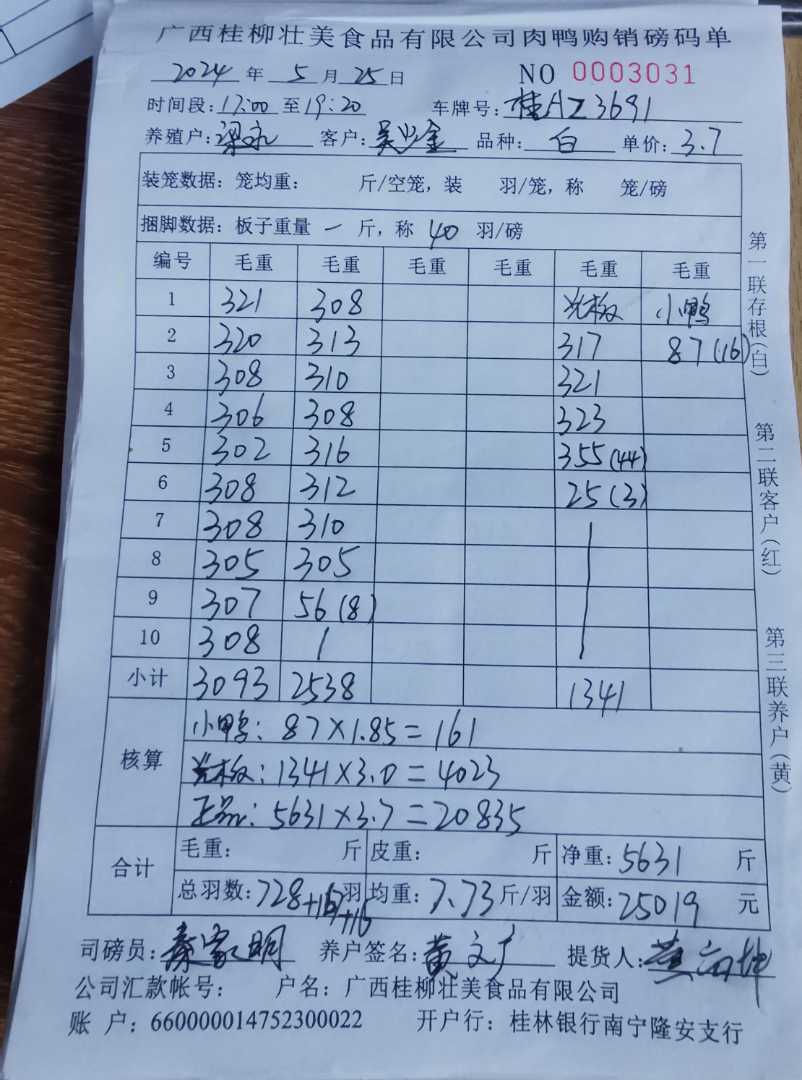 广西桂柳壮美食品有限公司肉鸭购销磅码单
2024 年 5 月 25 日 NO 0003031
时间段: 17:00 至 19:20 车牌号: 桂AZ3691
养殖户: 梁永 客户: 吴兴金 品种: 白 单价: 3.7
装笼数据: 笼均重: 斤/空笼, 装 羽/笼, 称 笼/磅
捆脚数据: 板子重量 一 斤, 称 40 羽/磅
编号 毛重 毛重 毛重 毛重 毛重 毛重
1 321 308 光板 小鸭
2 320 313 317 87(16)
3 308 310 321
4 306 308 323
5 302 316 355(44)
6 308 312 25(3)
7 308 310
8 305 305
9 307 56(8)
10 308 /
小计 3093 2538 1341
核算
小鸭: 87×1.85=161
光板: 1341×3.0=4023
正品: 5631×3.7=20835
合计
毛重: 斤 皮重: 斤 净重: 5631 斤
总羽数: 728+167+16 羽 均重: 7.73 斤/羽 金额: 25019 元
司磅员: 秦家明 养户签名: 黄文广 提货人: 黄
公司汇款帐号: 户名: 广西桂柳壮美食品有限公司
账 户: 660000014752300022 开户行: 桂林银行南宁隆安支行
第一联存根(白)
第二联客户(红)
第三联养户(黄)